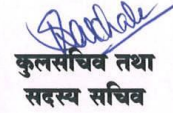 कुलसचिव तथा
सदस्य सचिव